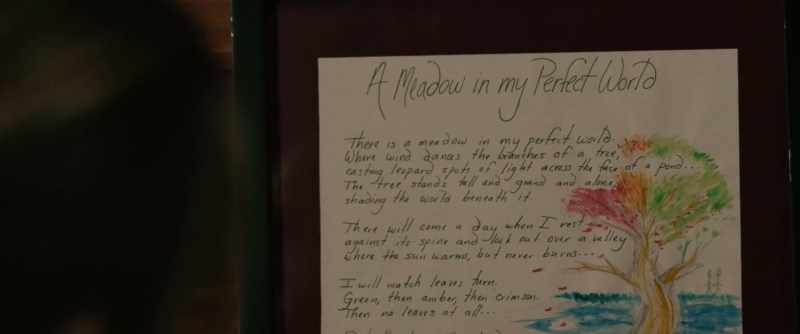 A Meadow in my Perfect World
There is a meadow in my perfect world.
Where wind dances the branches of a tree,
casting leopard spots of light across the face of a pond...
The tree stands tall and grand and alone,
shading the world beneath it.
There will come a day when I rest
against its spine and look out over a valley
where the sun warms, but never burns...
I will watch leaves turn.
Green, then amber, then crimson.
Then no leaves at all...